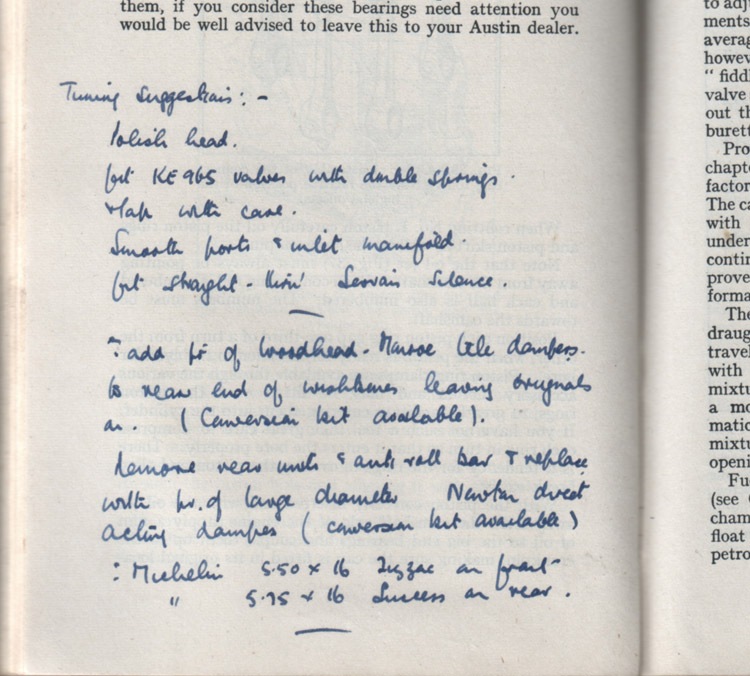 them, if you consider these bearings need attention you
would be well advised to leave this to your Austin dealer.
Tuning Suggestions: -
Polish head.
fit KE 965 valves with double springs.
& lap with care.
Smooth ports & inlet manifold.
fit straight-thro' Servais Silence.
: add pr of Woodhead-Monroe tele dampers.
to rear end of wishbones leaving originals
on. (Conversion kit available).
Remove rear units & anti roll bar & replace
with pr. of large diameter Newton direct
acting dampers (conversion kit available)
: Michelin 5.50 x 16 Zigzag on front
" 5.75 x 16 Success on rear.
to adj
ments
averag
howev
" fiddl
valve
out th
burett
Pro
chapt
factor
The ca
with
under
contin
prove
forma
The
draug
travel
with
mixtu
a mo
matic
mixtu
openi
Fu
(see
cham
float
petro